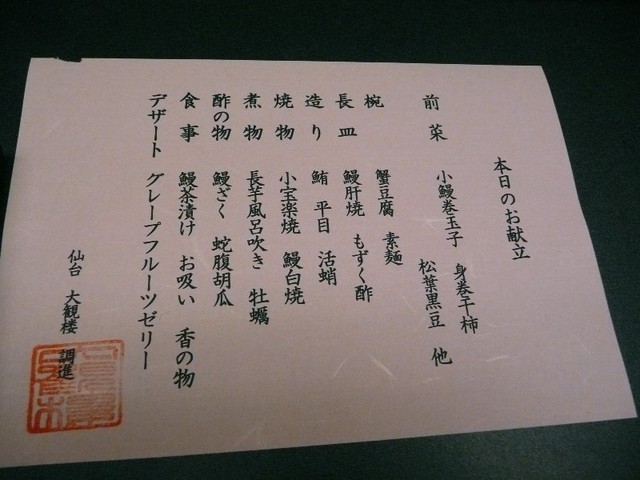 本日のお献立
前菜 小鰻巻玉子 身巻干柿
松葉黒豆 他
椀 蟹豆腐 素麺
長皿 鰻肝焼 もずく酢
造り 鮪 平目 活蛸
焼物 小宝楽焼 鰻白焼
煮物 長芋風呂吹き 牡蠣
酢の物 鰻ざく 蛇腹胡瓜
食事 鰻茶漬け お吸い 香の物
デザート グレープフルーツゼリー
仙台 大観楼 調進